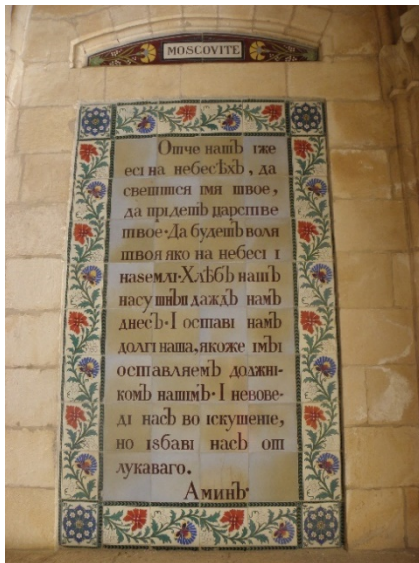 MOSCOVITE
Отче нашъ iже
есi на небесѣхъ, да
светится iмя твое,
да прiдетъ царстве
твое·Да будетъ воля
твоя яко на небесi i
наѕемлi·Хлѣбъ нашъ
насушнiи даждъ намъ
днесъ·I оставi намъ
долгi наша, якоже iмы
оставляемъ должнi-
комъ нашiмъ·I невове-
дi насъ во iскушенiе,
но iѕбавi насъ от
лукаваго.
Аминъ·